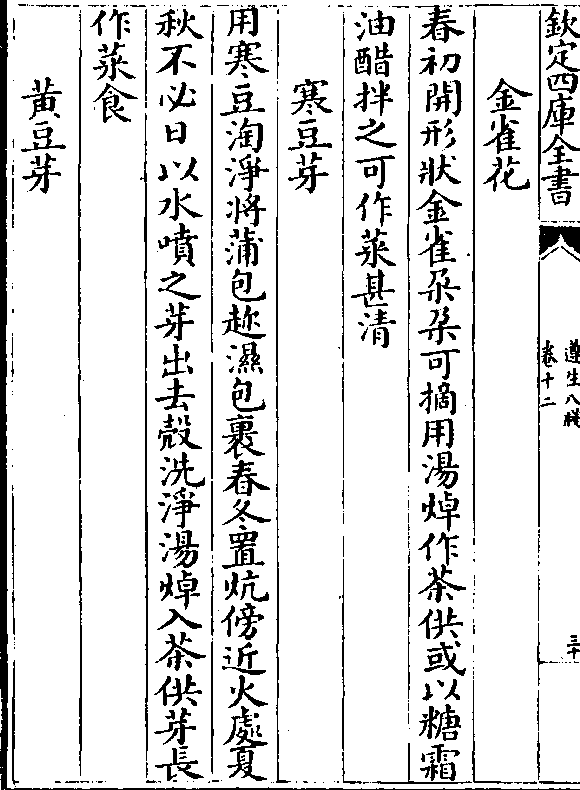 欽定四庫全書
遵生八牋
卷十二
三十
金雀花
春初開形狀金雀朶朶可摘用湯焯作茶供或以糖霜
油醋拌之可作菜甚清
寒豆芽
用寒豆淘淨將蒲包趂濕包裹春冬置炕傍近火處夏
秋不必日以水噴之芽出去殼洗淨湯焯入茶供芽長
作菜食
黃豆芽